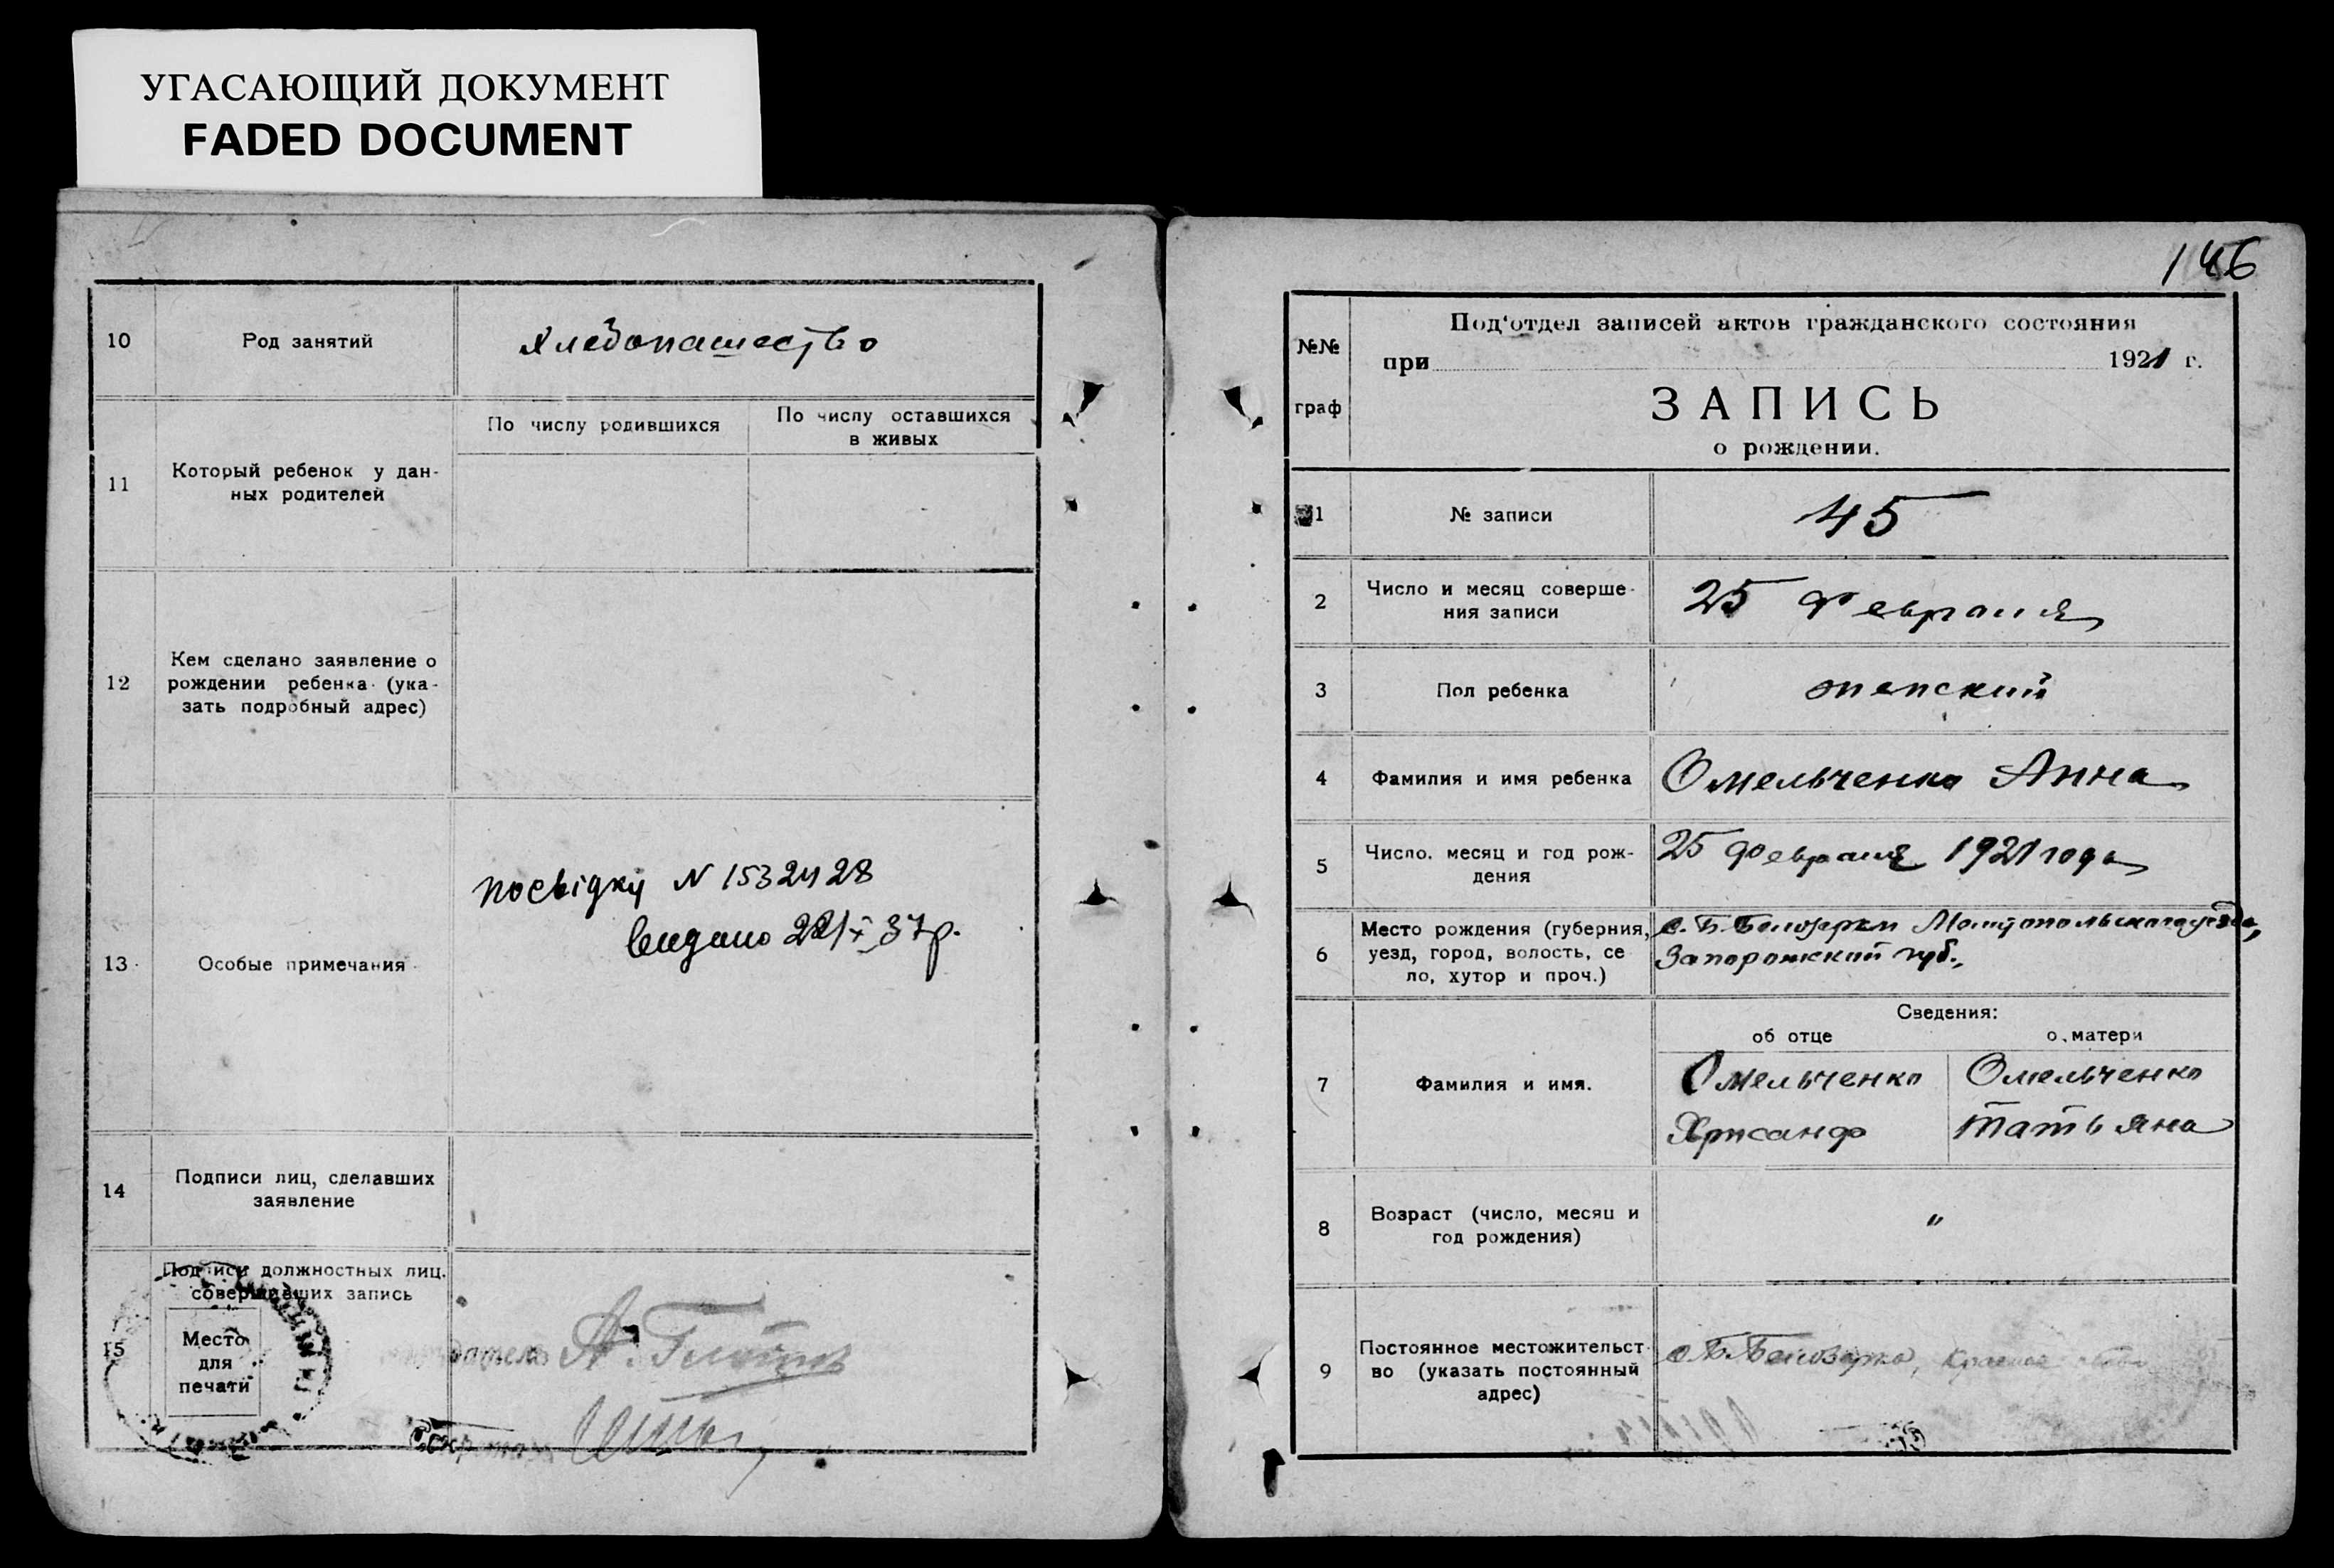 УГАСАЮЩИЙ ДОКУМЕНТ
FADED DOCUMENT
10
Род занятий
хлебопашество
11
Который ребенок у дан-
ных родителей
По числу родившихся
По числу оставшихся
в живых
12
Кем сделано заявление о
рождении ребенка (ука-
зать подробный адрес)
13
Особые примечания
посвідку N 1532428
видано 22/X 37р.
14
Подписи лиц, сделавших
заявление
15
Подписи должностных лиц.
совершивших запись
Место
для
печати
А.
146
№№
граф
Под'отдел записей актов гражданского состояния
при 1921 г.
ЗАПИСЬ
о рождении.
1
№ записи
45
2
Число и месяц соверше-
ния записи
25 февраля
3
Пол ребенка
женский
4
Фамилия и имя ребенка
Омельченко Анна
5
Число. месяц и год рож-
дения
25 февраля 1921 года
6
Место рождения (губерния,
уезд, город, волость, се
ло, хутор и проч.)
с. Б. Белозерки Мелитопольскаго уезда,
Запорожский губ.,
Сведения:
об отце
о матери
7
Фамилия и имя.
Омельченко
Хрисанф
Омельченко
Татьяна
8
Возраст (число, месяц и
год рождения)
"
9
Постоянное местожительст
во (указать постоянный
адрес)
с. Б. Белозерка,